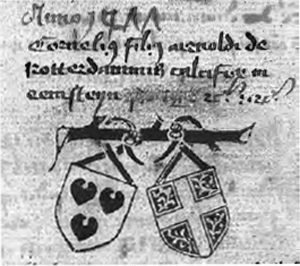 Anno
Cornelius filius arnoldi de
Rotterdammis calcifex in
eemsteyn